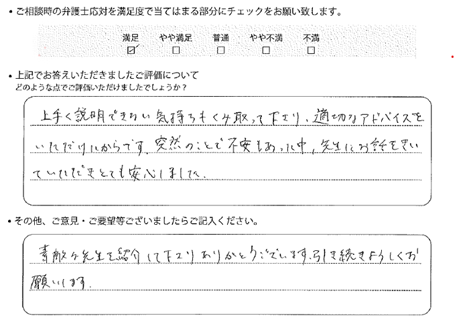 ・ご相談時の弁護士応対を満足度で当てはまる部分にチェックをお願い致します。
満足 やや満足 普通 やや不満 不満
☑ □ □ □ □
・上記でお答えいただきましたご評価について
どのような点でご評価いただけましたでしょうか？
上手く説明できない気持ちもくみ取って下さり、適切なアドバイスを
いただけたからです。突然のことで不安もあった中、先生にお話をきい
ていただきとても安心しました。
・その他、ご意見・ご要望等ございましたらご記入ください。
素敵な先生を紹介して下さりありがとうございます。引き続きよろしくお
願いします。